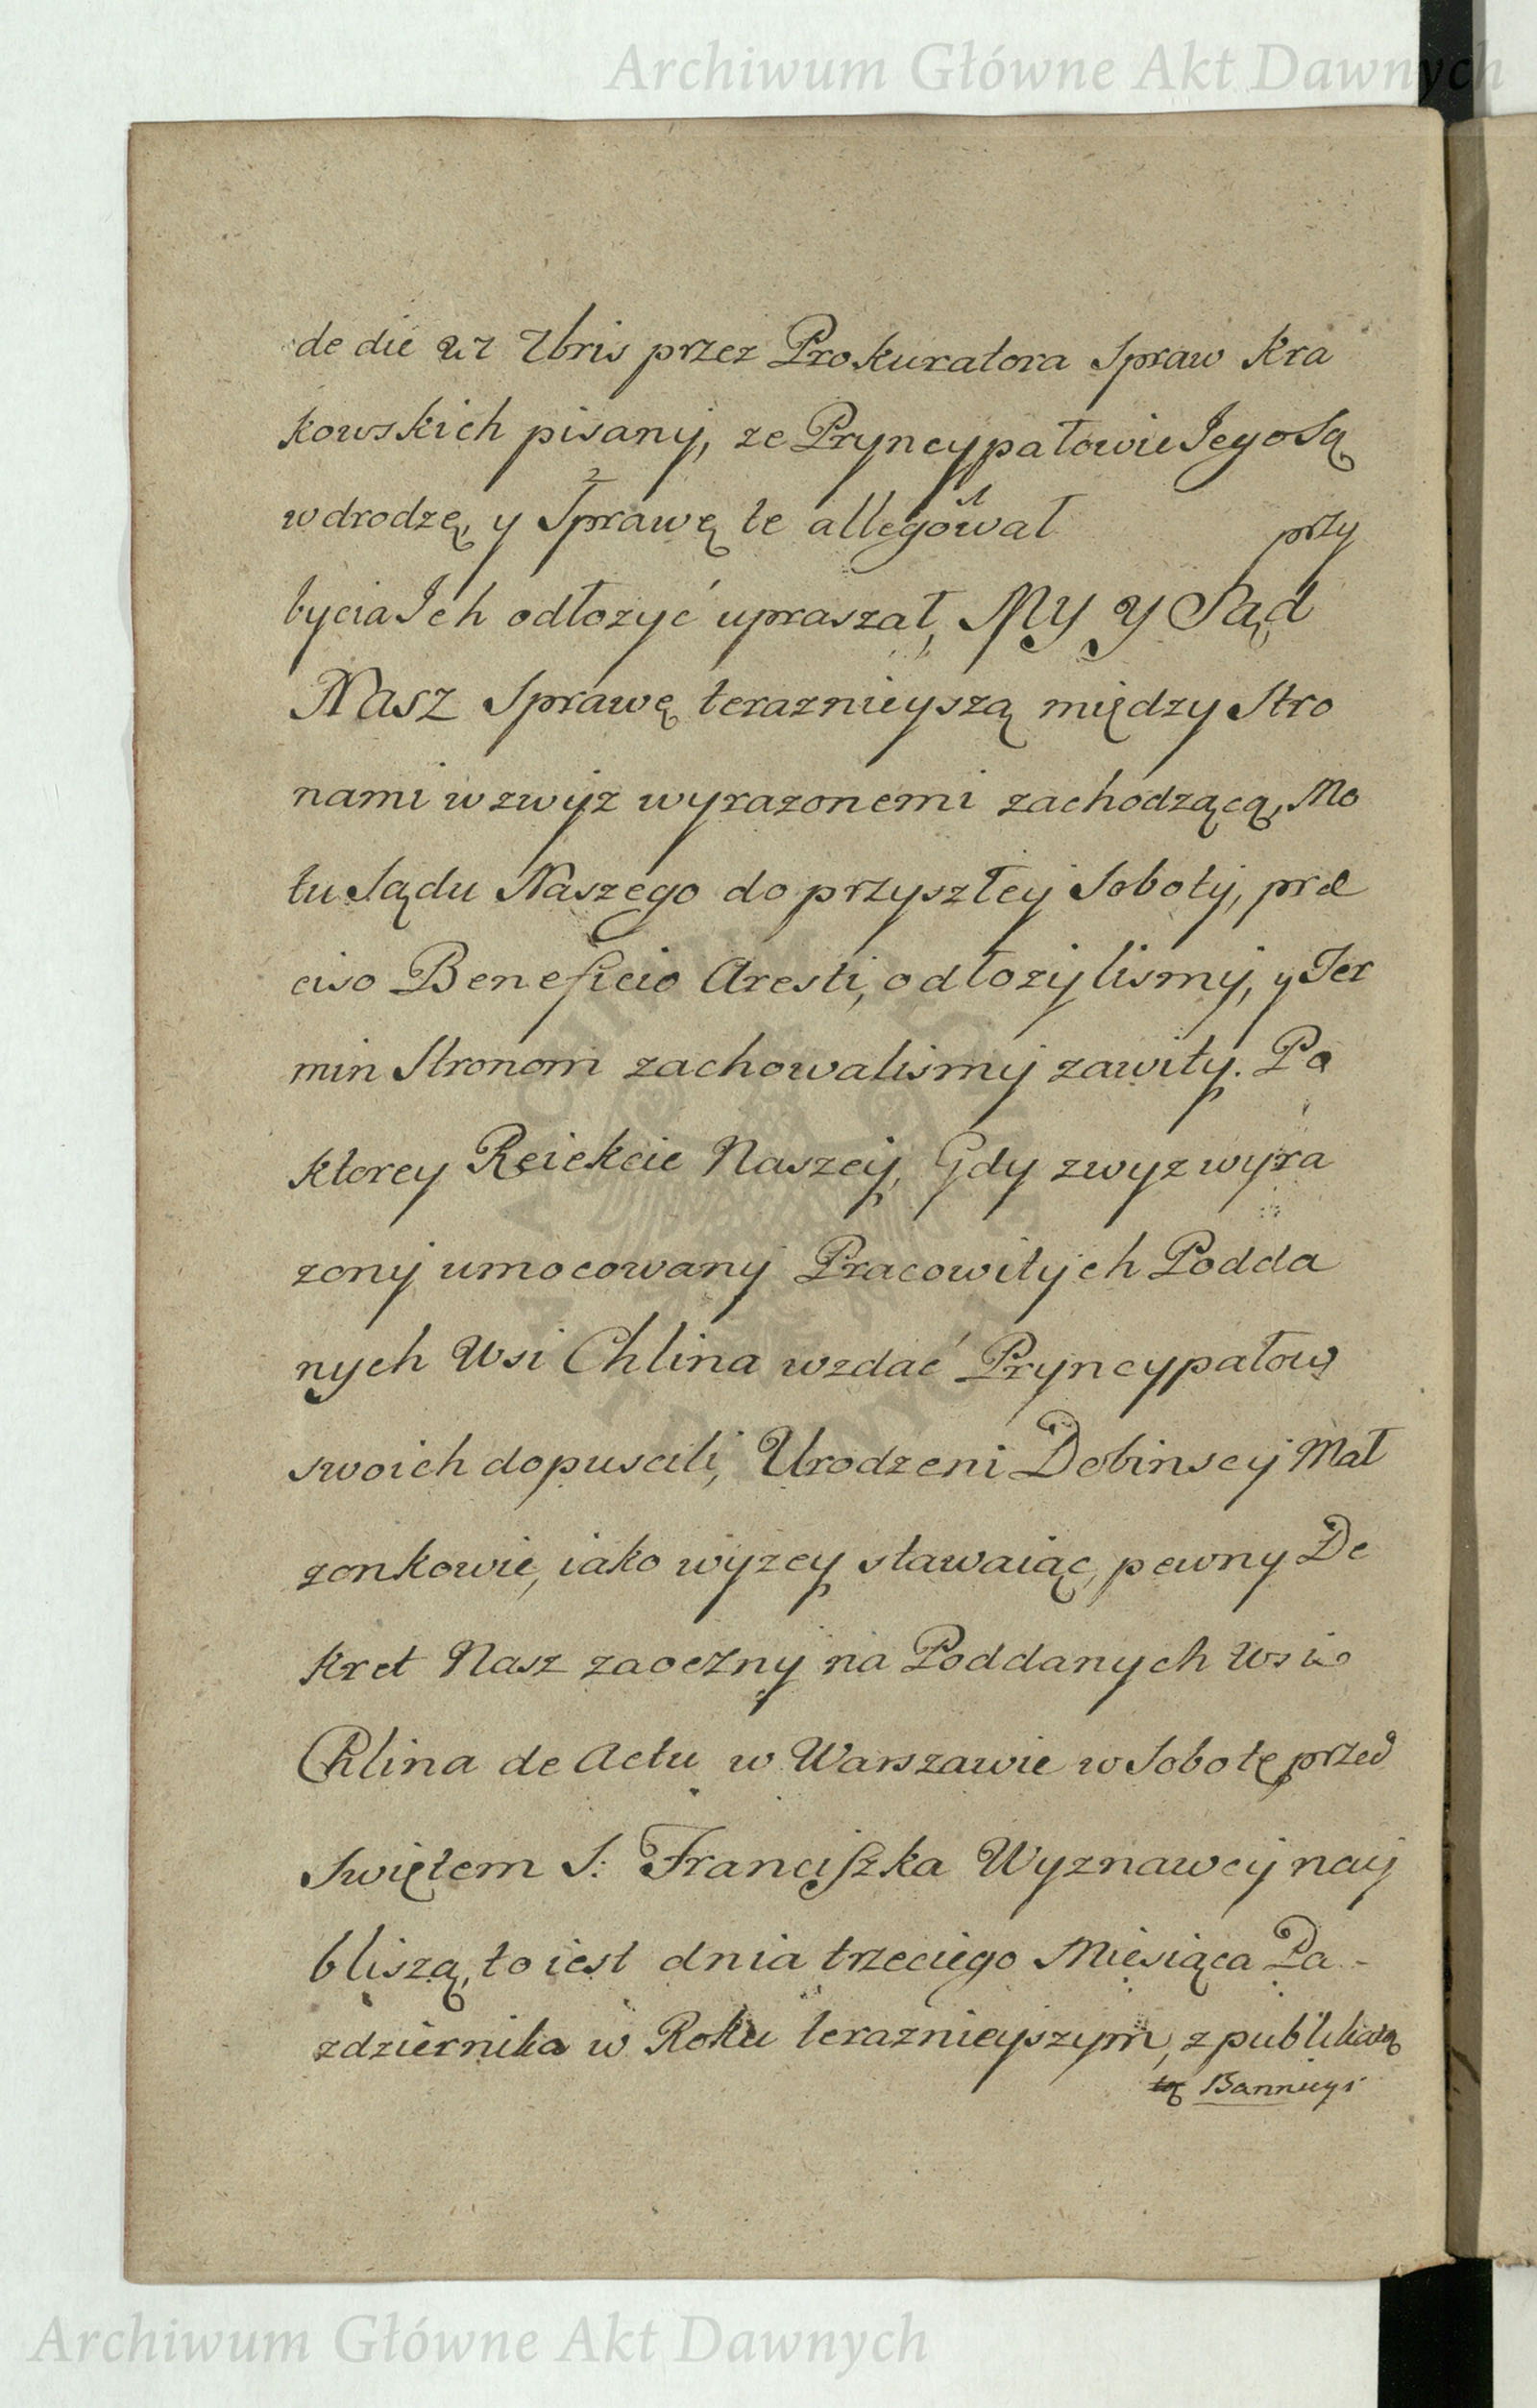 Archiwum Główne Akt Dawnych
de die 27 7bris przez Prokuratora Spraw Kra
kowskich pisany, ze Pryncypałowie Jego Są
w drodzę, y Sprawę te allegował przy
bycia Ich odłozyć upraszał, My y Sąd
Nasz Sprawę teraznieyszą między Stro
nami wzwyż wyrazonemi zachodzącą, Mo
tu Sądu Naszego do przyszłey Soboty, præ
ciso Beneficio Aresti, odłozylismy, y Ter
min Stronom zachowalismy zawity. Po
ktorey Reiekcie Naszey, Gdy zwyz wyra
zony umocowany Pracowitych Podda
nych Wsi Chlina wzdać Pryncypałow
swoich dopuscili, Urodzeni Dobinscy Mał
zonkowie, iako wyzey stawaiąc, pewny De
kret Nasz zaoczny na Poddanych Wsi
Chlina de Actu w Warszawie w Sobotę przed
Swiętem S: Franciszka Wyznawcy nay
bliszą, to iest dnia trzeciego Miesiąca Pa-
zdziernika w Roku terazniejszym, z publikatą
Bannicyi
Archiwum Główne Akt Dawnych